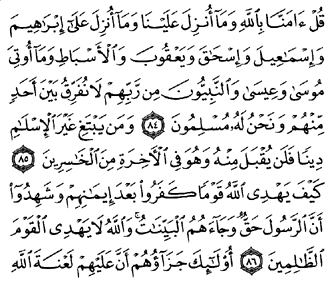 قُلْ ءَامَنَّا بِٱللَّهِ وَمَآ أُنزِلَ عَلَيْنَا وَمَآ أُنزِلَ عَلَىٰٓ إِبْرَٰهِيمَ
وَإِسْمَٰعِيلَ وَإِسْحَٰقَ وَيَعْقُوبَ وَٱلْأَسْبَاطِ وَمَآ أُوتِىَ
مُوسَىٰ وَعِيسَىٰ وَٱلنَّبِيُّونَ مِن رَّبِّهِمْ لَا نُفَرِّقُ بَيْنَ أَحَدٍ
مِّنْهُمْ وَنَحْنُ لَهُۥ مُسْلِمُونَ ٨٤ وَمَن يَبْتَغِ غَيْرَ ٱلْإِسْلَٰمِ
دِينًا فَلَن يُقْبَلَ مِنْهُ وَهُوَ فِى ٱلْءَاخِرَةِ مِنَ ٱلْخَٰسِرِينَ ٨٥
كَيْفَ يَهْدِى ٱللَّهُ قَوْمًا كَفَرُوا۟ بَعْدَ إِيمَٰنِهِمْ وَشَهِدُوٓا۟
أَنَّ ٱلرَّسُولَ حَقٌّ وَجَآءَهُمُ ٱلْبَيِّنَٰتُ ۚ وَٱللَّهُ لَا يَهْدِى ٱلْقَوْمَ
ٱلظَّٰلِمِينَ ٨٦ أُو۟لَٰٓئِكَ جَزَآؤُهُمْ أَنَّ عَلَيْهِمْ لَعْنَةَ ٱللَّهِ